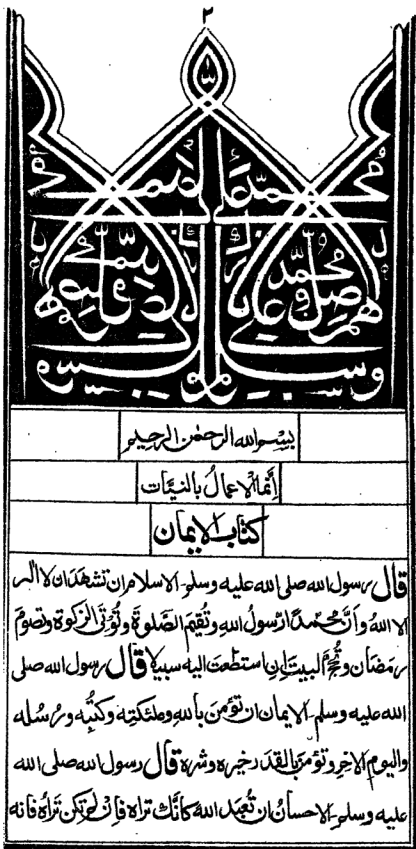 ٢
بسم الله الرحمن الرحيم
إنما الاعمال بالنيات
كتاب الايمان
قال رسول الله صلى الله عليه وسلم الاسلام ان تشهد ان لا اله
الا الله وأنّ محمدًا رسول الله وتقيم الصلوة وتؤتى الزكوة وتصوم
رمضان وتحجّ البيت ان استطعت اليه سبيلا قال رسول الله صلى
الله عليه وسلم الايمان ان تؤمن بالله وملئكته وكتبه ورسله
واليوم الاخر وتؤمن بالقدر خيره وشره قال رسول الله صلى الله
عليه وسلم الاحسان ان تعبد الله كانّك تراه فان لم تكن تراه فانه